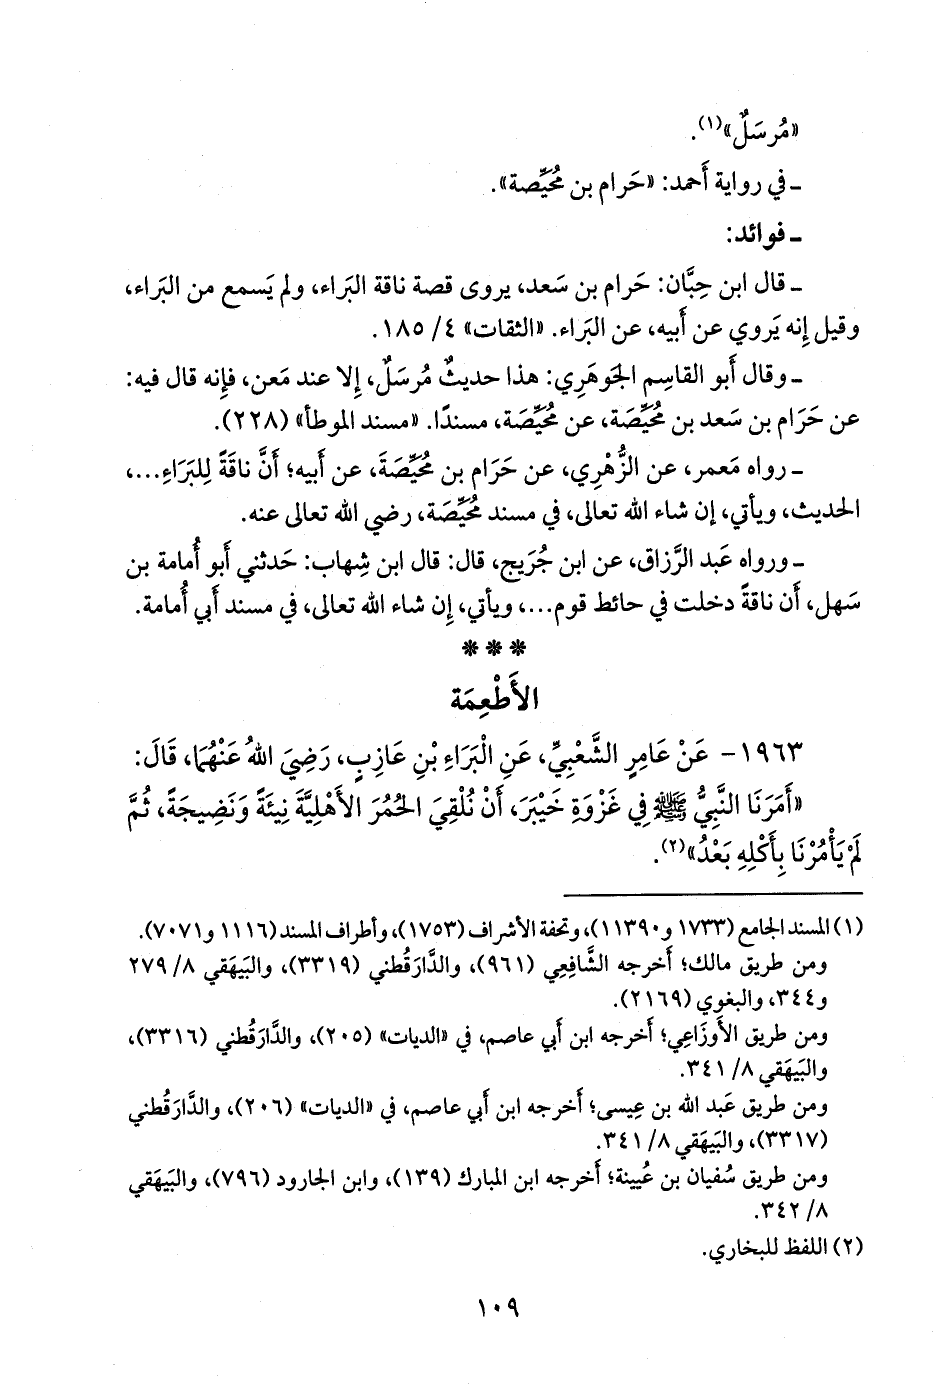 «مُرسَلٌ»(١).
ـ في رواية أَحمد: «حَرام بن مُحَيِّصة».
ـ فوائد:
ـ قال ابن حِبَّان: حَرام بن سَعد، يروى قصة ناقة البَراء، ولم يَسمع من البَراء،
وقيل إِنه يَروي عن أَبيه، عن البَراء. «الثقات» ٤/ ١٨٥.
ـ وقال أَبو القاسِم الجَوهَري: هذا حديثٌ مُرسَلٌ، إِلا عند مَعن، فإِنه قال فيه:
عن حَرَام بن سَعد بن مُحَيِّصَة، عن مُحَيِّصَة، مسندًا. «مسند الموطأ» (٢٢٨).
ـ رواه مَعمر، عن الزُّهْرِي، عن حَرَام بن مُحَيِّصَةَ، عن أَبيه؛ أَنَّ ناقَةً لِلبَرَاءِ...،
الحديث، ويأتي، إن شاء الله تعالى، في مسند مُحَيِّصَة، رضي الله تعالى عنه.
ـ ورواه عَبد الرَّزاق، عن ابن جُرَيج، قال: قال ابن شِهاب: حَدثني أَبو أُمامة بن
سَهل، أَن ناقةً دخلت في حائط قوم...، ويأتي، إِن شاء الله تعالى، في مسند أَبي أُمامة.
* * *
الأَطْعِمَة
١٩٦٣- عَنْ عَامِرٍ الشَّعْبِيِّ، عَنِ الْبَرَاءِ بْنِ عَازِبٍ، رَضِيَ اللهُ عَنْهُمَا، قَالَ:
«أَمَرَنَا النَّبِيُّ ﷺ فِي غَزْوَةِ خَيْبَرَ، أَنْ نُلْقِيَ الْحُمُرَ الأَهْلِيَّةَ نِيئَةً وَنَضِيجَةً، ثُمَّ
لَمْ يَأْمُرْنَا بِأَكْلِهِ بَعْدُ»(٢).
(١) المسند الجامع (١٧٣٣ و١١٣٩٠)، وتحفة الأشراف (١٧٥٣)، وأطراف المسند (١١١٦ و٧٠٧١).
ومن طريق مالك؛ أَخرجه الشَّافِعي (٩٦١)، والدَّارَقُطني (٣٣١٩)، والبَيهَقي ٨/ ٢٧٩
و٣٤٤، والبغوي (٢١٦٩).
ومن طريق الأَوزَاعِي؛ أَخرجه ابن أَبي عاصم، في «الديات» (٢٠٥)، والدَّارَقُطني (٣٣١٦)،
والبَيهَقي ٨/ ٣٤١.
ومن طريق عَبد الله بن عِيسى؛ أَخرجه ابن أَبي عاصم، في «الديات» (٢٠٦)، والدَّارَقُطني
(٣٣١٧)، والبَيهَقي ٨/ ٣٤١.
ومن طريق سُفيان بن عُيينة؛ أَخرجه ابن المبارك (١٣٩)، وابن الجارود (٧٩٦)، والبَيهَقي
٨/ ٣٤٢.
(٢) اللفظ للبخاري.
١٠٩